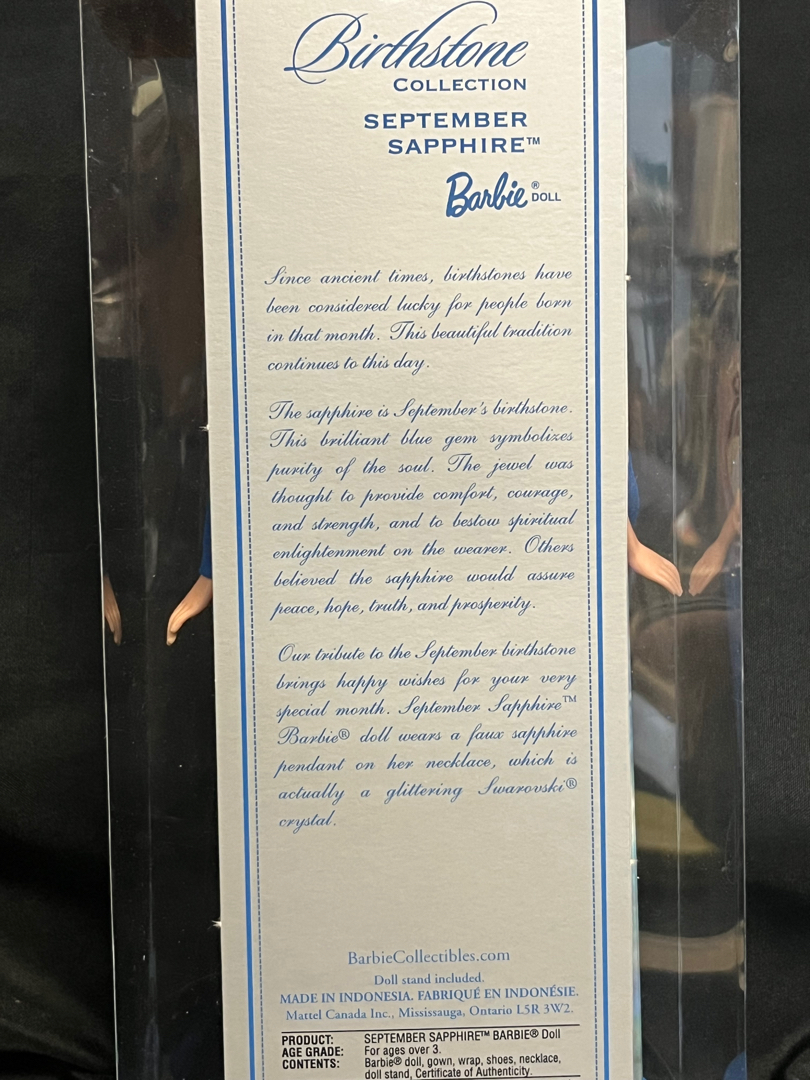 Birthstone
COLLECTION
SEPTEMBER
SAPPHIRE™
Barbie® DOLL
Since ancient times, birthstones have
been considered lucky for people born
in that month. This beautiful tradition
continues to this day.
The sapphire is September's birthstone.
This brilliant blue gem symbolizes
purity of the soul. The jewel was
thought to provide comfort, courage,
and strength, and to bestow spiritual
enlightenment on the wearer. Others
believed the sapphire would assure
peace, hope, truth, and prosperity.
Our tribute to the September birthstone
brings happy wishes for your very
special month. September Sapphire™
Barbie® doll wears a faux sapphire
pendant on her necklace, which is
actually a glittering Swarovski®
crystal.
BarbieCollectibles.com
Doll stand included.
MADE IN INDONESIA. FABRIQUÉ EN INDONÉSIE.
Mattel Canada Inc., Mississauga, Ontario L5R 3W2.
PRODUCT: SEPTEMBER SAPPHIRE™ BARBIE® Doll
AGE GRADE: For ages over 3.
CONTENTS: Barbie® doll, gown, wrap, shoes, necklace,
doll stand, Certificate of Authenticity.